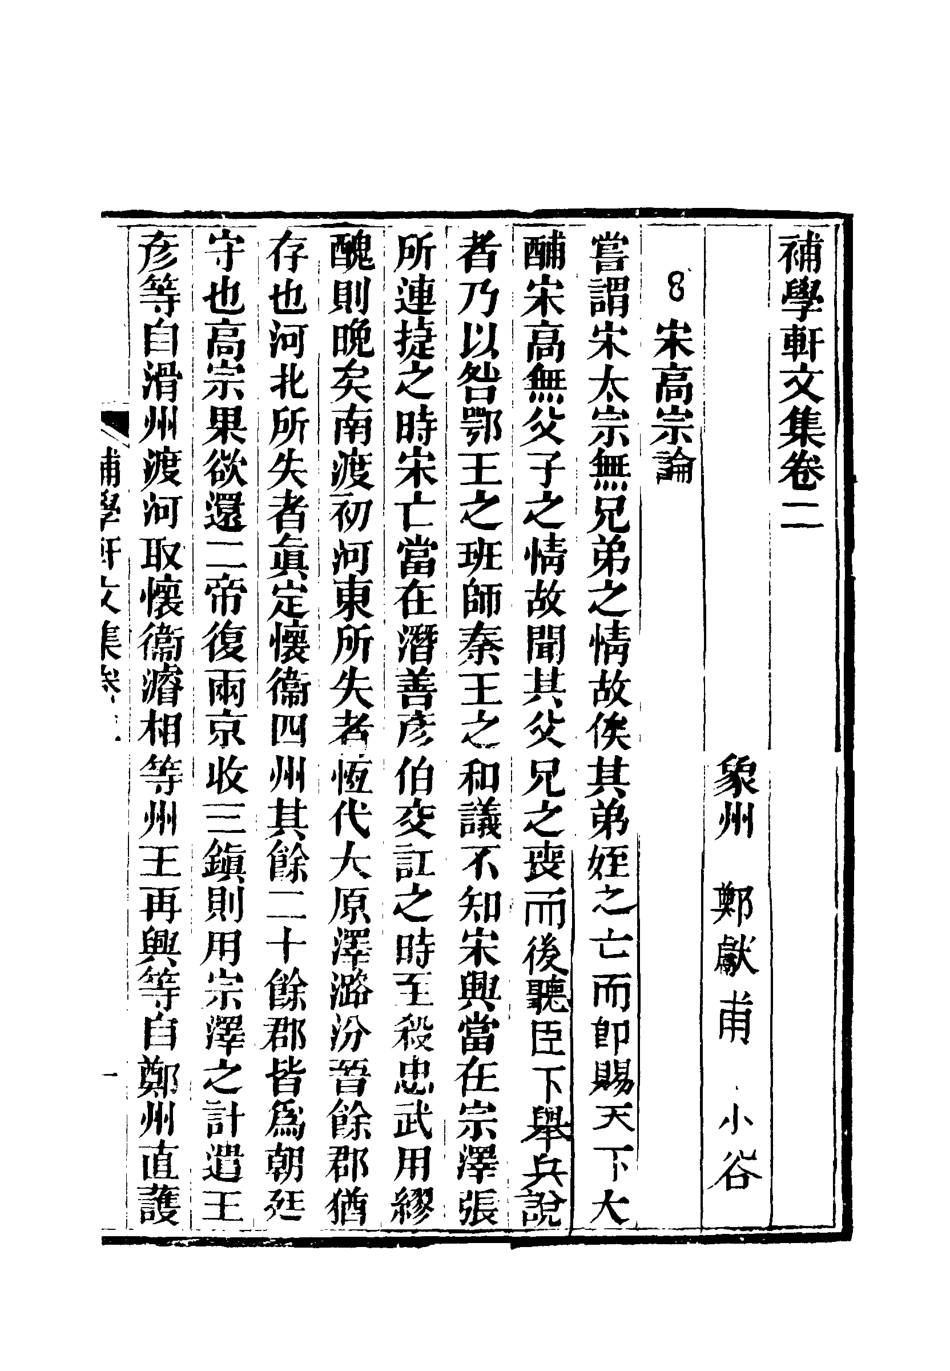 補學軒文集卷二
象州 鄭獻甫 小谷
8 宋高宗論
嘗謂宋太宗無兄弟之情故俟其弟姪之亡而卽賜天下大
酺宋高無父子之情故聞其父兄之喪而後聽臣下舉兵說
者乃以咎鄂王之班師秦王之和議不知宋興當在宗澤張
所連捷之時宋亡當在潛善彥伯交訌之時至殺忠武用繆
醜則晚矣南渡初河東所失者恆代大原澤潞汾晉餘郡猶
存也河北所失者眞定懷衞四州其餘二十餘郡皆爲朝廷
守也高宗果欲還二帝復兩京收三鎭則用宗澤之計遣王
彥等自滑州渡河取懷衞濬相等州王再興等自鄭州直護
補學軒文集卷二
一